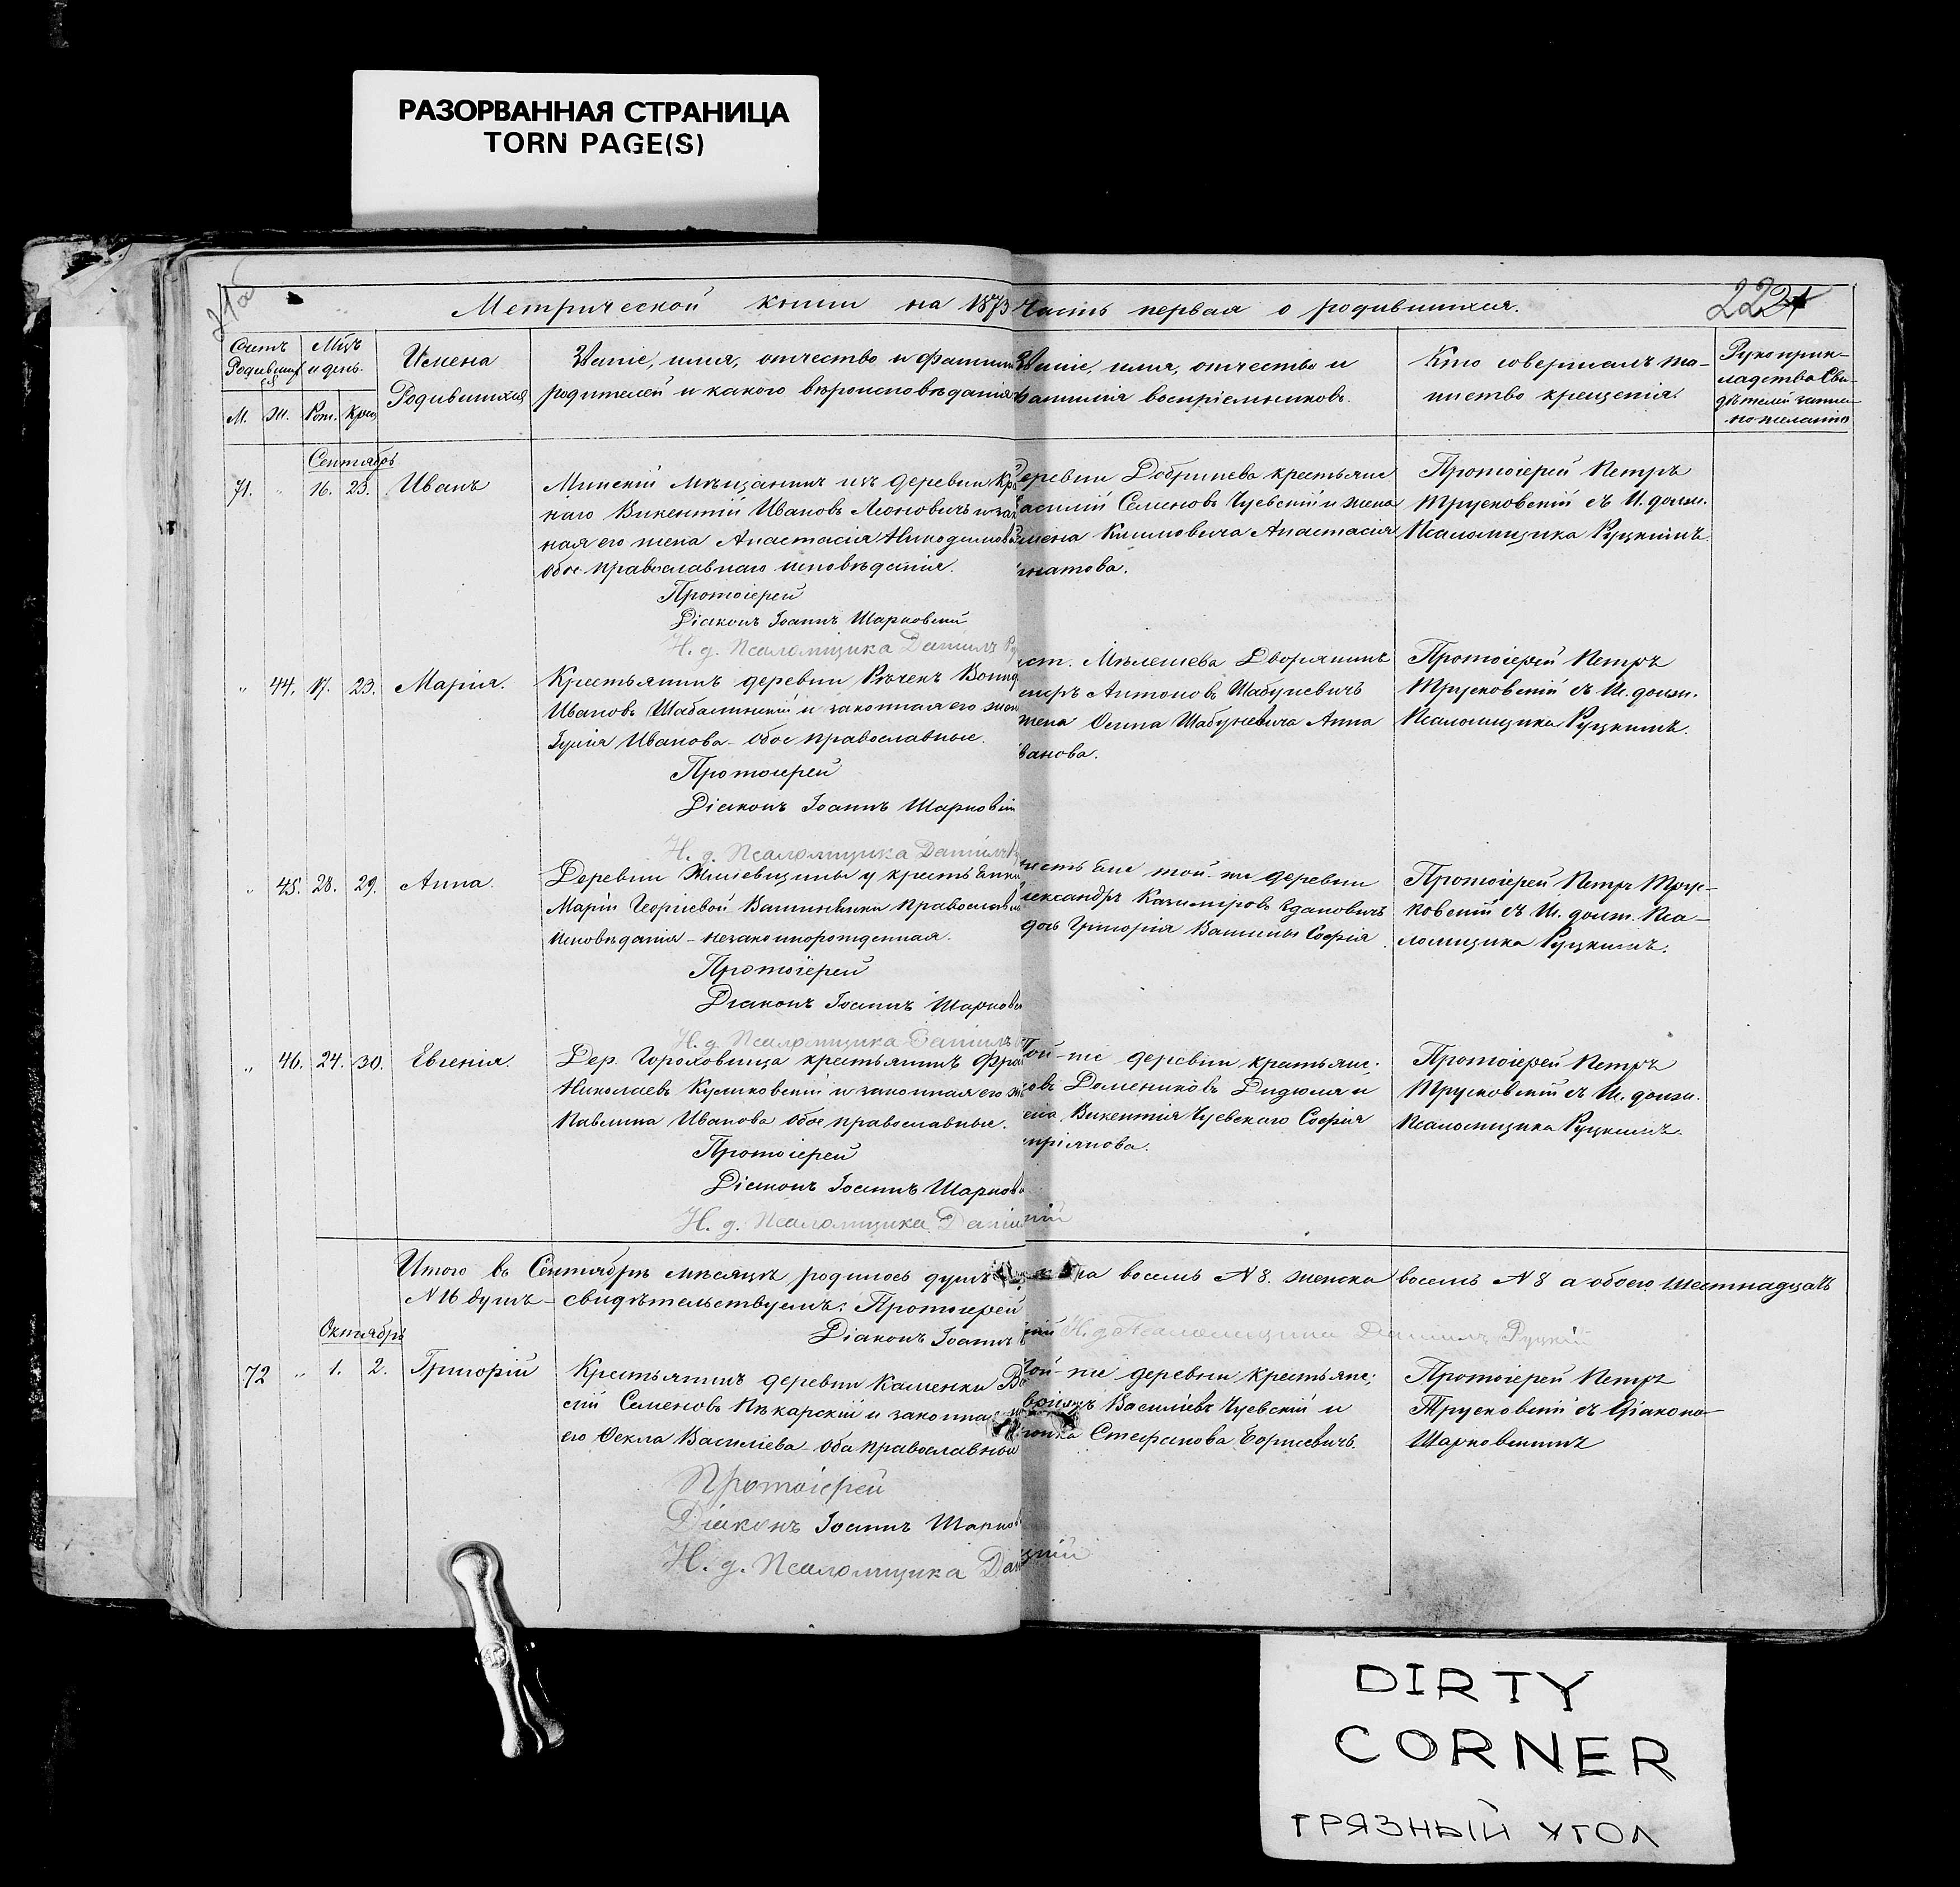 РАЗОРВАННАЯ СТРАНИЦА
TORN PAGE(S)
Метрической книги на 1873
Часть первая о родившихся.
Счетъ
Родившихся
Мцъ
и день.
М. Ж. Рож. Крещ.
Имена
Родившихся
Званіе, имя, отчество и фамилія
родителей и какого вѣроисповѣданія
Званіе, имя, отчество и
фамилія воспріемниковъ.
Кто совершалъ та-
инство крещенія.
Рукоприк-
ладство сви-
дѣтелей записи
по желанію
Сентябрь
71. " 16. 23. Иванъ
Минскій мѣщанинъ изъ деревни
наго Викентій Ивановъ Леоновичъ и
ная его жена Анастасія Никодимова
обое православнаго исповѣданія.
Протоіерей
Діаконъ Іоаннъ Шарковскій
И. д. Псаломщика Даніилъ
деревни Добринева крестьяне
Василій Семеновъ Чуевскій и жена
Климовича Анастасія
Игнатова.
Протоіерей Петръ
Трусковскій съ И. долж.
Псаломщика Руцкимъ.
" 44. 17. 23. Марія.
Крестьянинъ деревни Рѣчекъ
Ивановъ Шабалинскій и законная его жена
Іулія Иванова – обое православные.
Протоіерей
Діаконъ Іоаннъ Шарковскій
И. д. Псаломщика Даніилъ
Мѣлешева Дворянинъ
Антоновъ Шабуневичъ
жена Осипа Шабуневича Анна
Иванова.
Протоіерей Петръ
Трусковскій съ И. долж.
Псаломщика Руцкимъ.
" 45. 28. 29. Анна.
Деревни у
Маріи Георгіевой православнаго
исповѣданія – незаконнорожденная.
Протоіерей
Діаконъ Іоаннъ Шарковскій
И. д. Псаломщика Даніилъ
той-же деревни
Александръ Казимировъ Ждановичъ
дочь Григорія София
Протоіерей Петръ Трус-
ковскій съ И. долж. Пса-
ломщика Руцкимъ.
" 46. 24. 30. Евгенія.
Дер. Гороховища крестьянинъ
Николаевъ Куликовскій и законная его
Павлина Иванова обое православные.
Протоіерей
Діаконъ Іоаннъ
И. д. Псаломщика
Той-же деревни крестьяне:
Домениковъ Дидюля и
жена Викентія Чуевскаго Софія
Кипріянова.
Протоіерей Петръ
Трусковскій съ И. долж.
Псаломщика Руцкимъ.
Итого въ Сентябрѣ мѣсяцѣ родилось душъ восемь N 8. женска восемь N 8 а обоего шестнадцать
N 16 душъ – свидѣтельствуемъ: Протоіерей
Діаконъ Іоаннъ И. д. Псаломщика Даніилъ Руцкій
Октябрь
72 " 1. 2. Григорій
Крестьянинъ деревни Каменки
сій Семеновъ Пѣкарскій и законная
его Ѳекла Василіева – оба православные
Протоіерей
Діаконъ Іоаннъ
И. д. Псаломщика
Той-же деревни крестьяне;
Василіевъ Чуевскій и
Стефанова Борисевичъ.
Протоіерей Петръ
Трусковскій съ Діакономъ
Шарковскимъ
DIRTY
CORNER
ГРЯЗНЫЙ УГОЛ